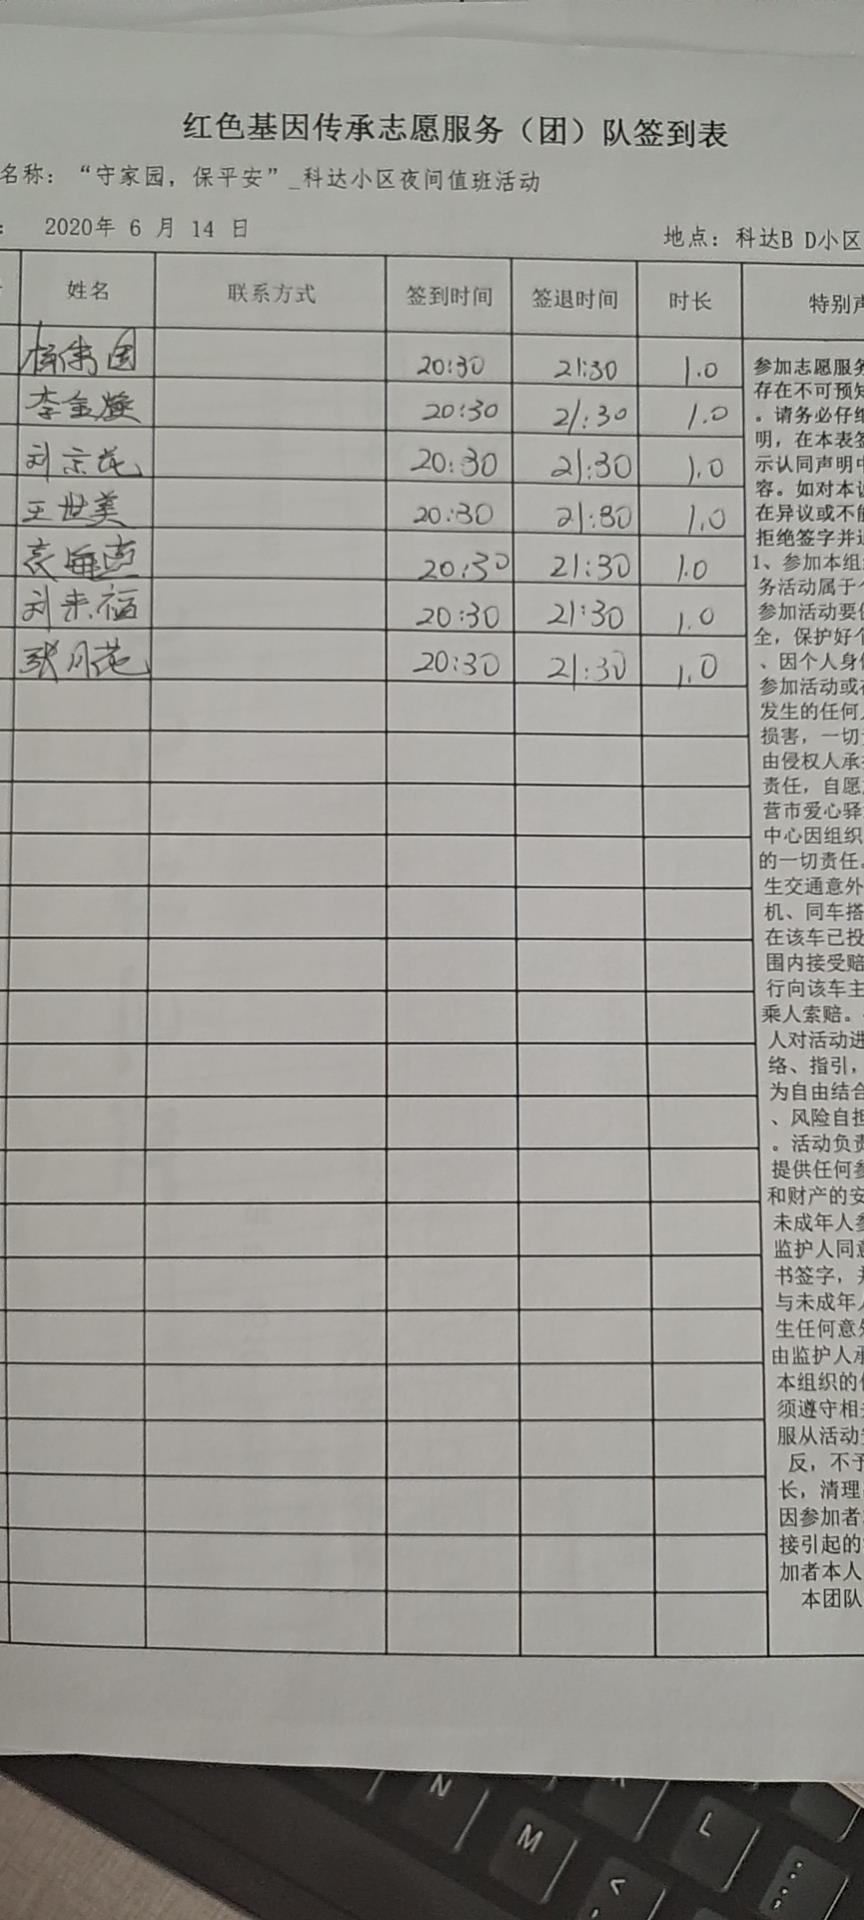 红色基因传承志愿服务（团）队签到表
名称：“守家园，保平安”_科达小区夜间值班活动
： 2020年 6 月 14 日
地点：科达B D小区
姓名 联系方式 签到时间 签退时间 时长 特别声
国 20:30 21:30 1.0
李金 20:30 21:30 1.0
刘京花 20:30 21:30 1.0
王世美 20:30 21:30 1.0
袁 20:30 21:30 1.0
刘来福 20:30 21:30 1.0
张月花 20:30 21:30 1.0
参加志愿服务
存在不可预知
。请务必仔细
明，在本表签
示认同声明中
容。如对本
在异议或不能
拒绝签字并退
1、参加本组
务活动属于个
参加活动要
全，保护好个
、因个人身体
参加活动或
发生的任何人
损害，一切
由侵权人承
责任，自愿
营市爱心驿
中心因组织
的一切责任。
生交通意外
机、同车搭
在该车已投
围内接受赔
行向该车主
乘人索赔。
人对活动进
络、指引，
为自由结合
、风险自担
。活动负责
提供任何参
和财产的安
未成年人参
监护人同意
书签字，并
与未成年人
生任何意外
由监护人承
本组织的
须遵守相关
服从活动
反，不予
长，清理
因参加者
接引起的
加者本人
本团队
N
M
K
L
<
,
:
;